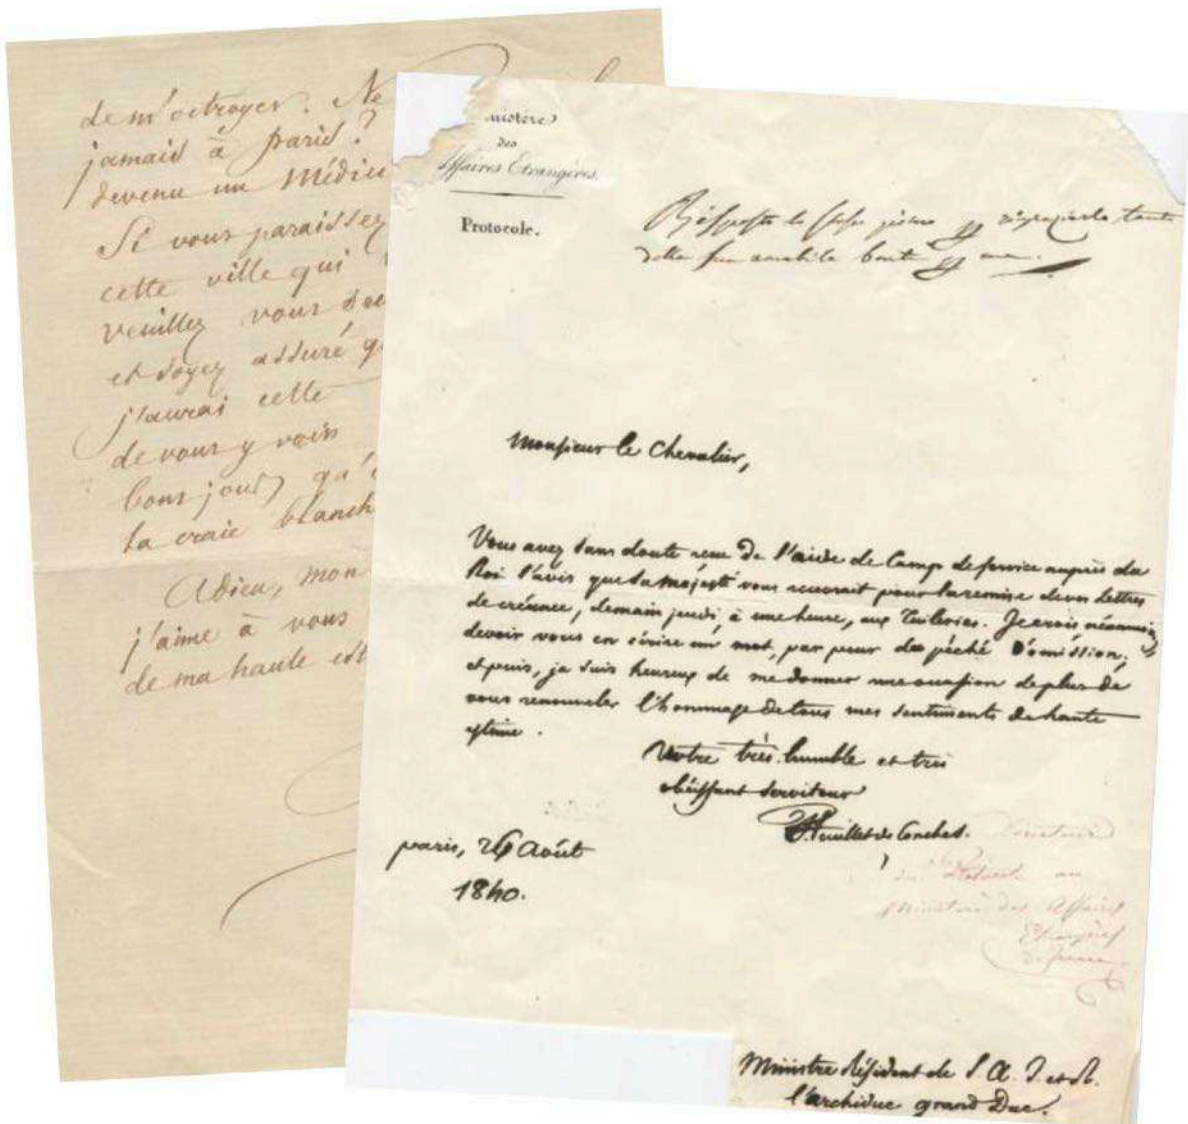 de m'octroyer. Ne
jamais à paris?
devenu un Médiu
Si vous paraissez
cette ville qui
veuillez vous
et soyez assuré qu
j'aurai cette
de vous y voir
bons jours qu'
la craie blanch
Adieu, mon
j'aime à vous
de ma haute est
nistère
des
ffaires Etrangères.
Protocole.
Risposto lo stesso giorno ringraziarlo tanto
della sua amabile bontà
Monsieur le Chevalier,
Vous avez sans doute reçu de l'aide de Camp de service auprès du
Roi l'avis que Sa Majesté vous recevrait pour la remise de vos lettres
de créance, demain jeudi, à une heure, aux Tuileries. Je crois néanmoins
devoir vous en écrire un mot, par peur du péché d'omission;
et puis, je suis heureux de me donner une occasion de plus de
vous renouveler l'hommage de tous mes sentiments de haute
estime.
Votre très humble et très
obéissant serviteur
Feuillet de Conches.
paris, 26 Août
1840.
du Protocole au
Ministère des Affaires
Etrangères
de france
Ministre Résident de S. A. I. et R.
l'archiduc grand Duc.